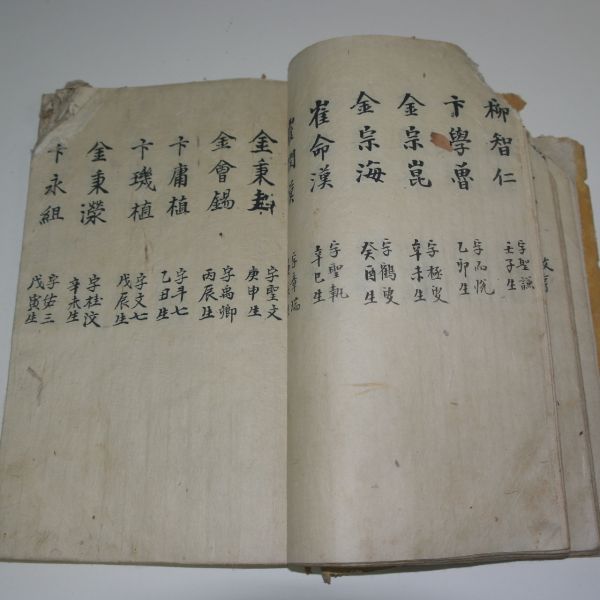 柳智仁
字聖謙
壬子生
卞學魯
字而悅
乙卯生
金宗崑
字極叟
辛未生
金宗海
字鶴叟
癸酉生
崔命漢
字聖執
辛巳生
金秉
字聖文
庚申生
金會錫
字禹卿
丙辰生
卞庸植
字平七
乙丑生
卞璣植
字文七
戊辰生
金秉濚
字桂汶
辛未生
卞永組
字佑三
戊寅生